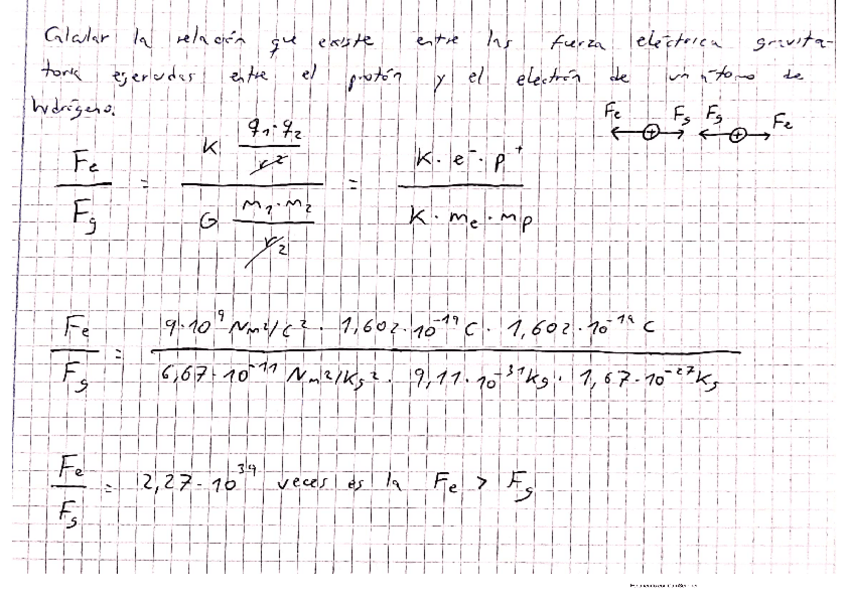 Calcular la relación que existe entre las fuerza eléctrica gravita-
toria ejercidas entre el protón y el electrón de un átomo de
hidrógeno.
Fe Fg Fg Fe
Fe/Fg = (K q1·q2/r²)/(G m1·m2/r²) = (K · e⁻ · p⁺)/(K · me · mp)
Fe/Fg = (9·10⁹ Nm²/C² · 1,602·10⁻¹⁹ C · 1,602·10⁻¹⁹ C)/(6,67·10⁻¹¹ Nm²/Kg² · 9,11·10⁻³¹ Kg · 1,67·10⁻²⁷ Kg)
Fe/Fg = 2,27·10³⁹ veces es la Fe > Fg